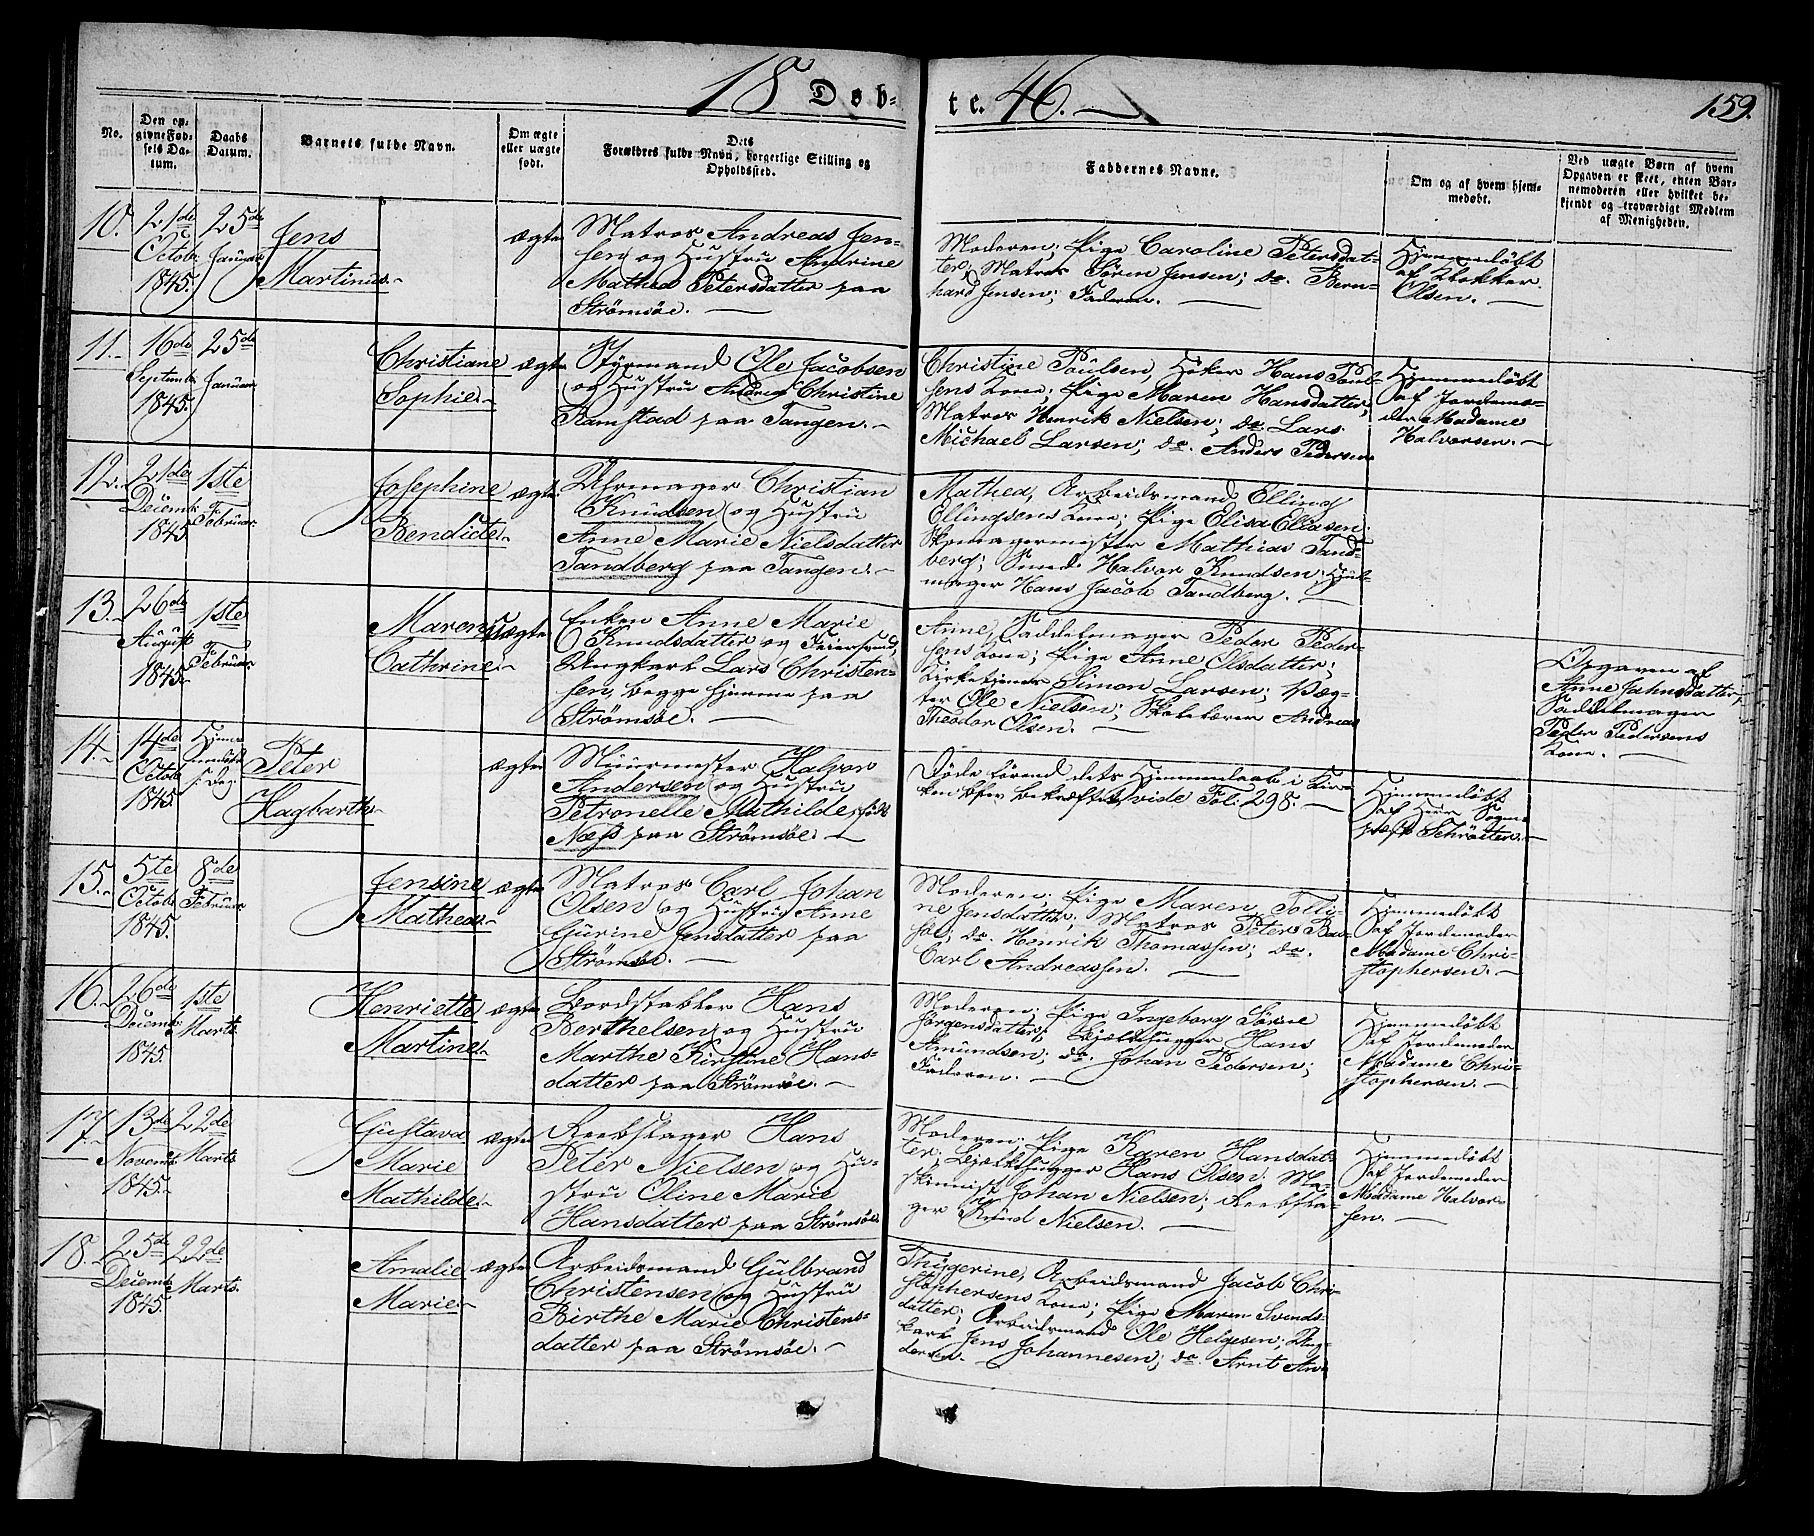 18 Døb-
te. 46.
159.
No.
Den op-
givne Fød-
sels Da-
tum.
Daabs
Datum.
Barnets fulde Navn.
Om ægte
eller uægte
født.
Dets
Forældres fulde Navn, borgerlige Stilling og
Opholdssted.
Faddernes Navne.
Om og af hvem hjem-
medøbt.
Ved uægte Børn af hvem
Opgaven er skeet, enten Bar-
nemoderen eller hvilket be-
kjendt og troværdigt Medlem
af Menigheden.
10.
21de
Octob.
1845.
25de
Januar
Jens
Martinus.
ægte
Matros Andreas Jen-
sen og Hustru Andrine
Mathea Petersdatter paa
Strömsöe.
Moderen; Pige Caroline Petersdat-
ter; Matros Sören Jensen; do. Bern-
hard Jensen; Faderen.
Hjemmedöbt
af Klokker
Olsen.
11.
16de
Septemb.
1845.
25de
Januar
Christiane
Sophie.
ægte
Styrmand Ole Jacobsen
og Hustru Andrea Christine
Ramstad paa Tangen.
Christine Poulsen, Höker Hans Poul-
sens Kone; Pige Maren Hansdatter;
Matros Henrik Nielsen; do. Lars
Michael Larsen; do. Anders Pedersen
Hjemmedöbt
af Jordemo-
der Madame
Halvorsen.
12.
21de
Decemb.
1845.
1ste
Februar
Josephine
Benedicte.
ægte
Uhrmager Christian
Knudsen og Hustru
Anne Marie Nielsdatter
Tandberg paa Tangen.
Mathea, Arbeidsmand Elling
Ellingsens Kone; Pige Elisa Eliasen;
Skomagermester Mathias Tand-
berg; Svend Halvor Knudsen; Hjul-
mager Hans Jacob Tandberg.
13.
26de
August
1845.
1ste
Februar
Maren
Cathrine.
Uægte
Enken Anne Marie
Knudsdatter og Feiersvend,
Ungkarl Lars Christen-
sen, begge hjemme paa
Strömsöe.
Anne, Saddelmager Peder Peder-
sens Kone; Pige Anne Olsdatter;
Kirketjener Simon Larsen; Væg-
ter Ole Nielsen; Skolelærer Andreas
Theodor Olsen.
Opgaven af
Anne Jahnsdatter,
Saddelmager
Peder Pedersens
Kone.
14.
14de
Octob.
1845.
Hjemme
s. Dag
Peter
Hagbarth.
ægte
Muurmester Halvor
Andersen og Hustru
Petronelle Mathilde, født
Næss paa Strömsöe.
Döde förend dets Hjemmedaab i Kir-
ken blev bekræftet, vide Fol: 298.
Hjemmedöbt
af Herr Sogne-
præst Schröetter.
15.
5te
Octob.
1845.
8de
Februar
Jensine
Mathea.
ægte
Matros Carl Johan
Olsen og Hustru Anne
Gurine Jensdatter paa
Strömsöe.
Moderen; Pige Maren Tolli-
ne Jensdatter; Matros Peter Bas-
söe; do. Henrik Thomassen; do.
Carl Andreassen.
Hjemmedöbt
af Jordemoder
Madame Chri-
stophersen.
16.
26de
Decemb.
1845.
1ste
Marts.
Henriette
Martine.
ægte
Bordstabler Hans
Berthelsen og Hustru
Marthe Kirstine Hans-
datter paa Strömsöe.
Moderen; Pige Ingeborg Sörine
Jörgensdatter; Bjælkehugger Hans
Amundsen; do. Johan Pedersen;
Faderen.
Hjemmedöbt
af Jordemoder
Madame Chri-
stophersen.
17.
13de
Novemb.
1845.
22de
Marts.
Gustava
Marie
Mathilde.
ægte
Reebslager Hans
Peter Nielsen og Hu-
stru Oline Marie
Hansdatter paa Strömsöe.
Moderen; Pige Karen Hansdat-
ter; Bjælkehugger Hans Olsen; Ma-
skinnist Johan Nielsen; Reebsla-
ger Knud Nielsen.
Hjemmedöbt
af Jordemoder
Madame Halvor-
sen.
18.
25de
Decemb.
1845.
22de
Marts.
Amalie
Marie.
ægte
Arbeidsmand Gulbrand
Christensen og Hustru
Birthe Marie Christens-
datter paa Strömsöe.
Thygerine, Arbeidsmand Jacob Chri-
stophersens Kone; Pige Maren Svends-
datter; Arbeidsmand Ole Helgesen; Ung-
karl Jens Johannesen; do. Arnt An-
dersen.